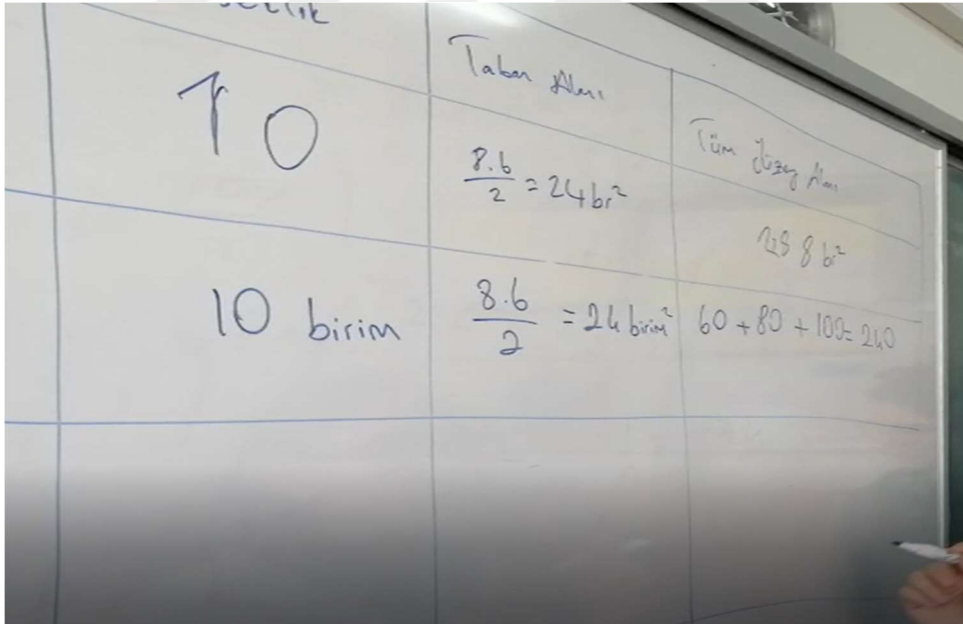 Taban Alanı
Tüm Yüzey Alanı
10
8.6
2
= 24 br²
288 br²
10 birim
8.6
2
= 24 birim²
60 + 80 + 100 = 240